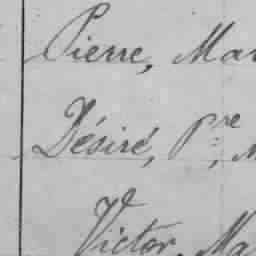 Pierre, Mar
Désiré, Pre, M
Victor, Ma